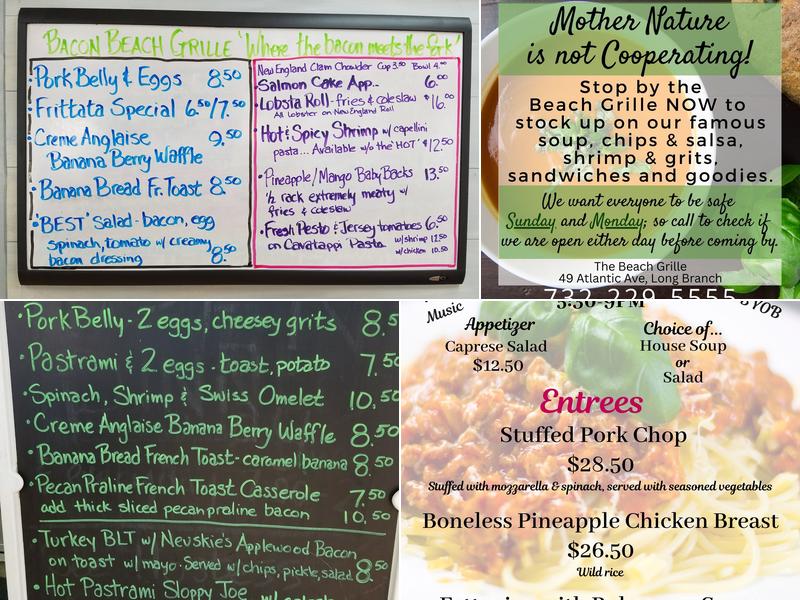 BACON BEACH GRILLE 'Where the bacon meets the fork'
• Pork Belly & Eggs 8.50
• Frittata Special 6.50/7.50
• Creme Anglaise 9.50
Banana Berry Waffle
• Banana Bread Fr. Toast 8.50
• 'BEST' Salad - bacon, egg
spinach, tomato w/ creamy
bacon dressing 8.50
New England Clam Chowder Cup 3.50 Bowl 4.00
• Salmon Cake App... 6.00
• Lobsta Roll - fries & coleslaw $16.00
All lobster on New England Roll
• Hot & Spicy Shrimp w/ capellini
pasta... Available w/o the 'HOT' $12.50
• Pineapple/Mango Baby Backs 13.50
1/2 rack extremely meaty w/
fries & coleslaw
• Fresh Pesto & Jersey tomatoes 6.50
on Cavatappi Pasta w/shrimp 12.50
w/chicken 10.50
Mother Nature
is not Cooperating!
Stop by the
Beach Grille NOW to
stock up on our famous
soup, chips & salsa,
shrimp & grits,
sandwiches and goodies.
We want everyone to be safe
Sunday and Monday; so call to check if
we are open either day before coming by.
The Beach Grille
49 Atlantic Ave, Long Branch
732-229-5555
• Pork Belly - 2 eggs, cheesey grits 8.5
• Pastrami & 2 eggs - toast, potato 7.50
• Spinach, Shrimp & Swiss Omelet 10.50
• Creme Anglaise Banana Berry Waffle 8.50
• Banana Bread French Toast - caramel banana 8.50
• Pecan Praline French Toast Casserole 7.50
add thick sliced pecan praline bacon 10.50
• Turkey BLT w/ Nevskie's Applewood Bacon
on toast w/ mayo. Served w/ chips, pickle, salad 8.50
• Hot Pastrami Sloppy Joe
5:30-9PM
Music
BYOB
Appetizer
Caprese Salad
$12.50
Choice of...
House Soup
or
Salad
Entrees
Stuffed Pork Chop
$28.50
Stuffed with mozzarella & spinach, served with seasoned vegetables
Boneless Pineapple Chicken Breast
$26.50
Wild rice